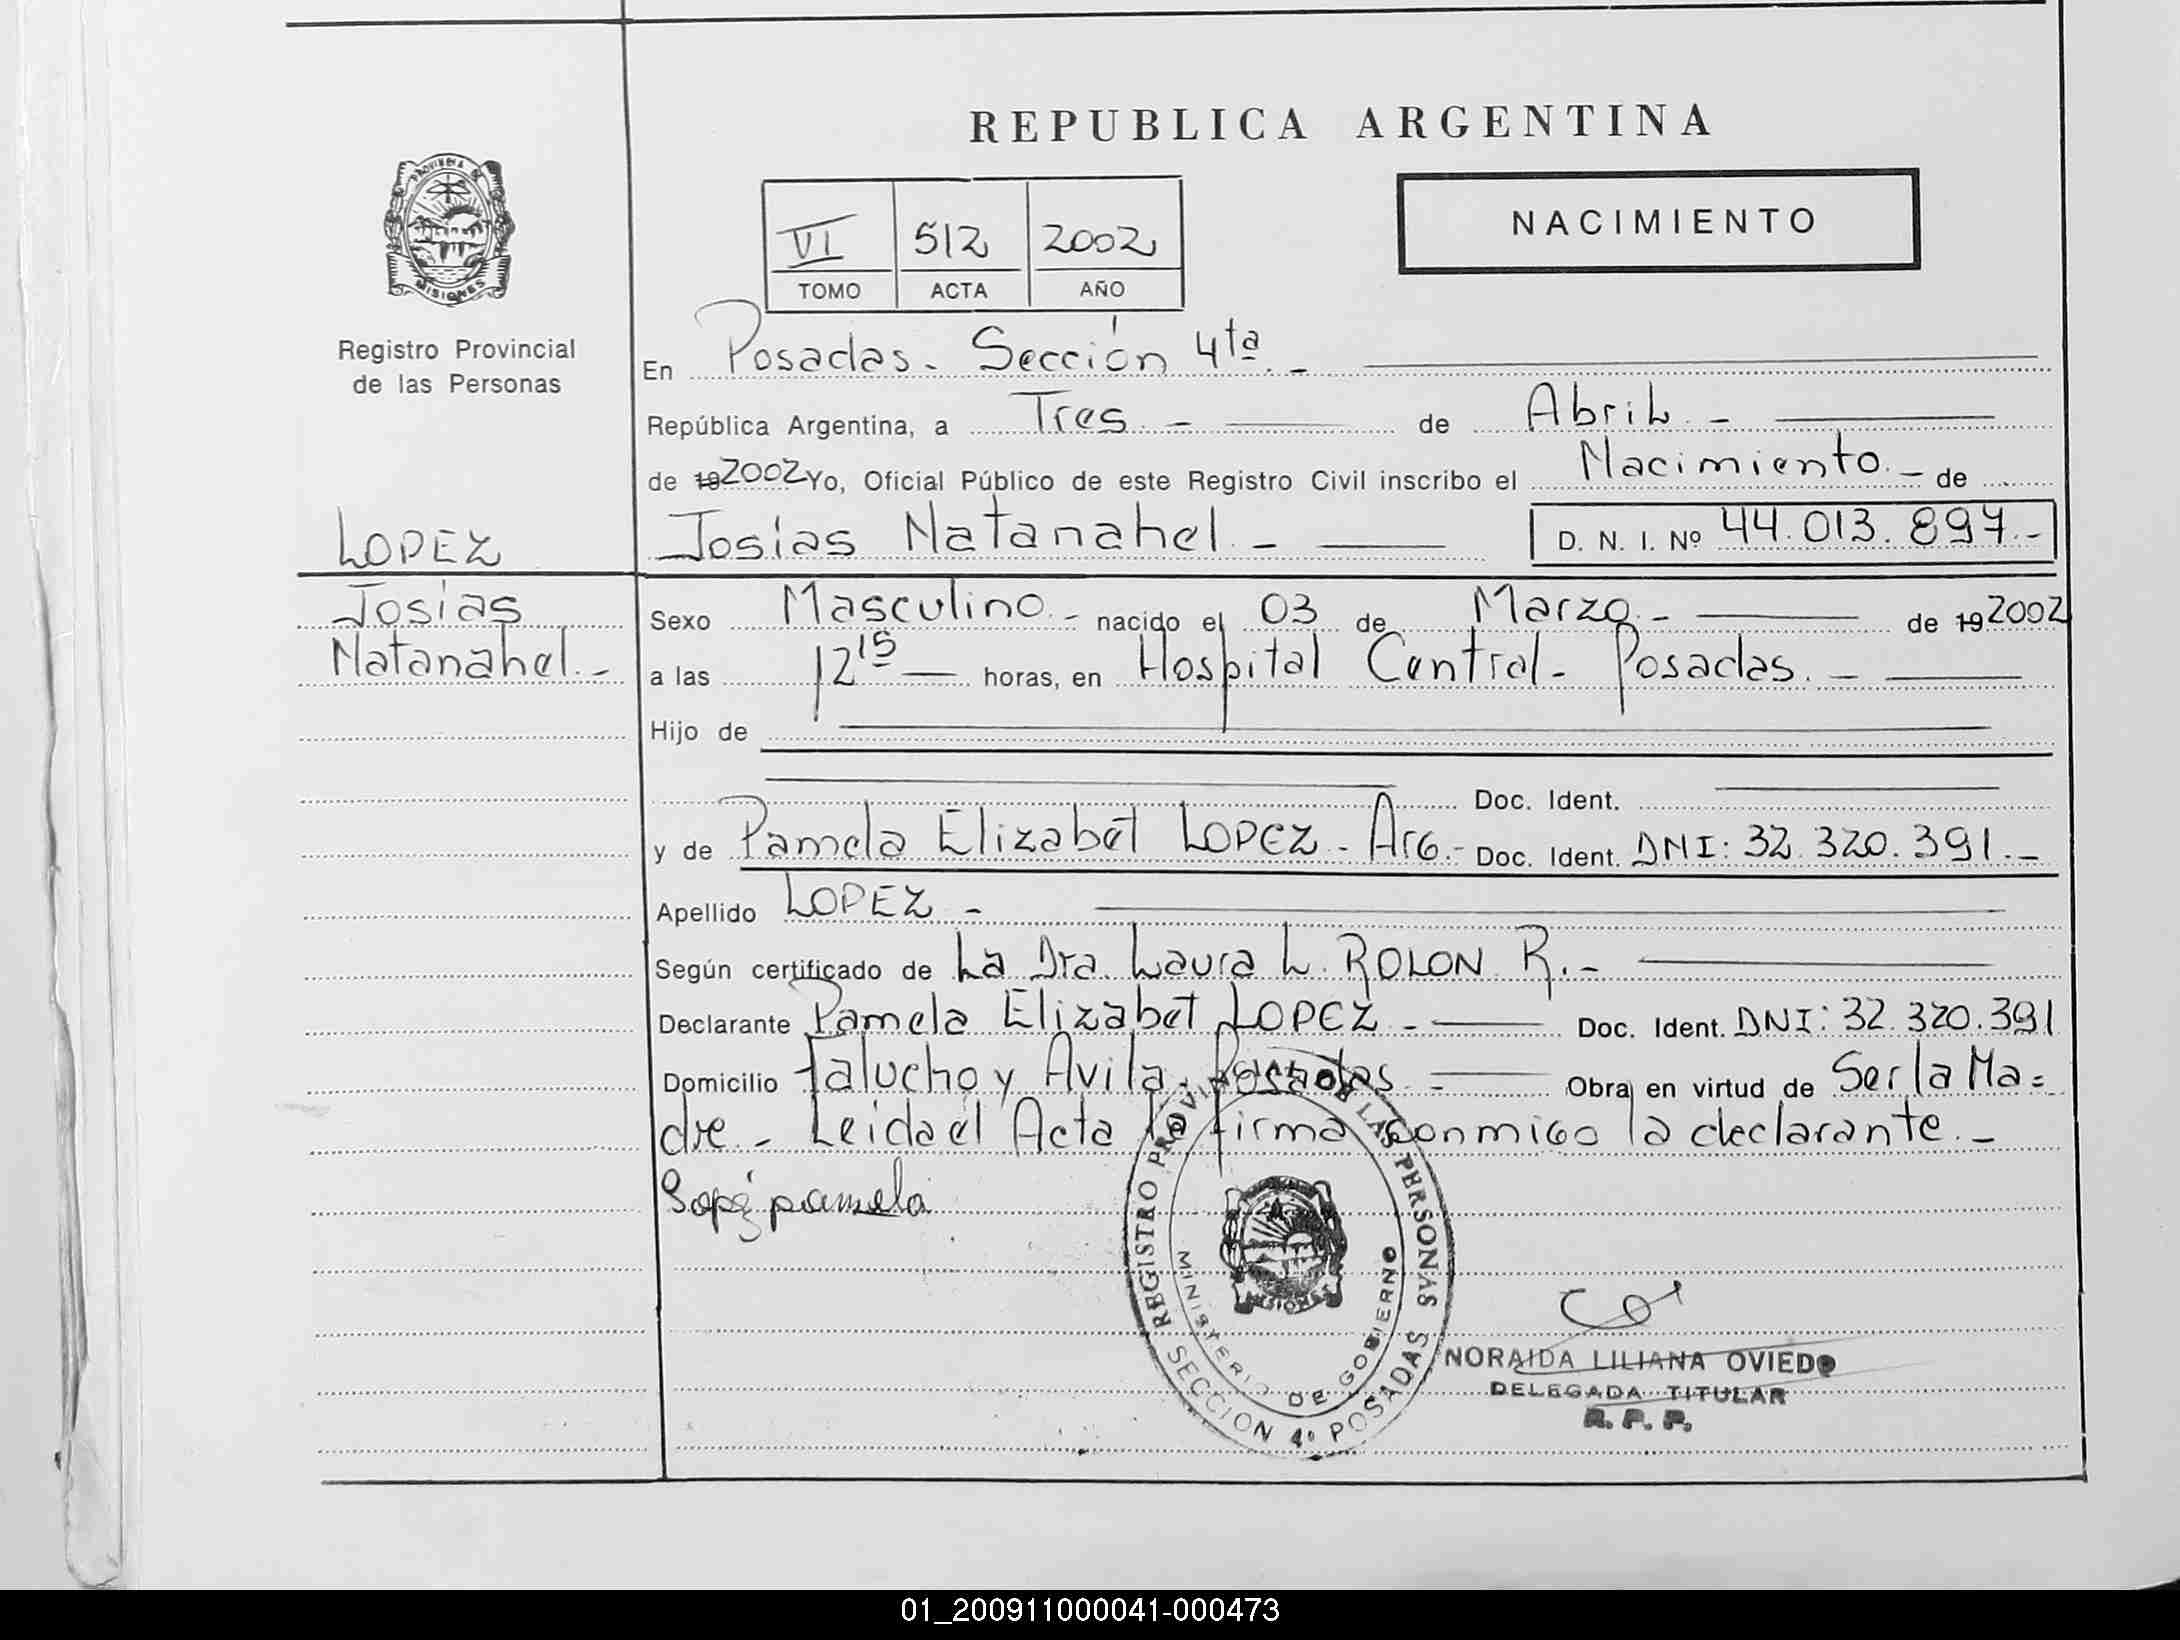 REPUBLICA ARGENTINA
PROVINCIA DE
MISIONES
Registro Provincial
de las Personas
VI 512 2002
TOMO ACTA AÑO
NACIMIENTO
En Posadas. Sección 4ta. -
República Argentina, a Tres. - de Abril. -
de 19 2002 Yo, Oficial Público de este Registro Civil inscribo el Nacimiento. - de
LOPEZ
Josías
Natanahel. -
Josías Natanahel. - D. N. I. Nº 44.013.897.-
Sexo Masculino. - nacido el 03 de Marzo. - de 19 2002
a las 12 15 horas, en Hospital Central - Posadas. -
Hijo de
Doc. Ident.
y de Pamela Elizabet LOPEZ - Arg.- Doc. Ident. DNI: 32.320.391. -
Apellido LOPEZ -
Según certificado de La Dra. Laura L. ROLON R. -
Declarante Pamela Elizabet LOPEZ - Doc. Ident. DNI: 32.320.391
Domicilio Falucho y Avila. Posadas. - Obra en virtud de Ser la Ma=
dre. - Leida el Acta la firma conmigo la declarante. -
Lopéz pamela
REGISTRO PROVINCIAL DE LAS PERSONAS
MINISTERIO DE GOBIERNO
MISIONES
SECCION 4º POSADAS
NORAIDA LILIANA OVIEDO
DELEGADA TITULAR
R. P. P.
01_200911000041-000473